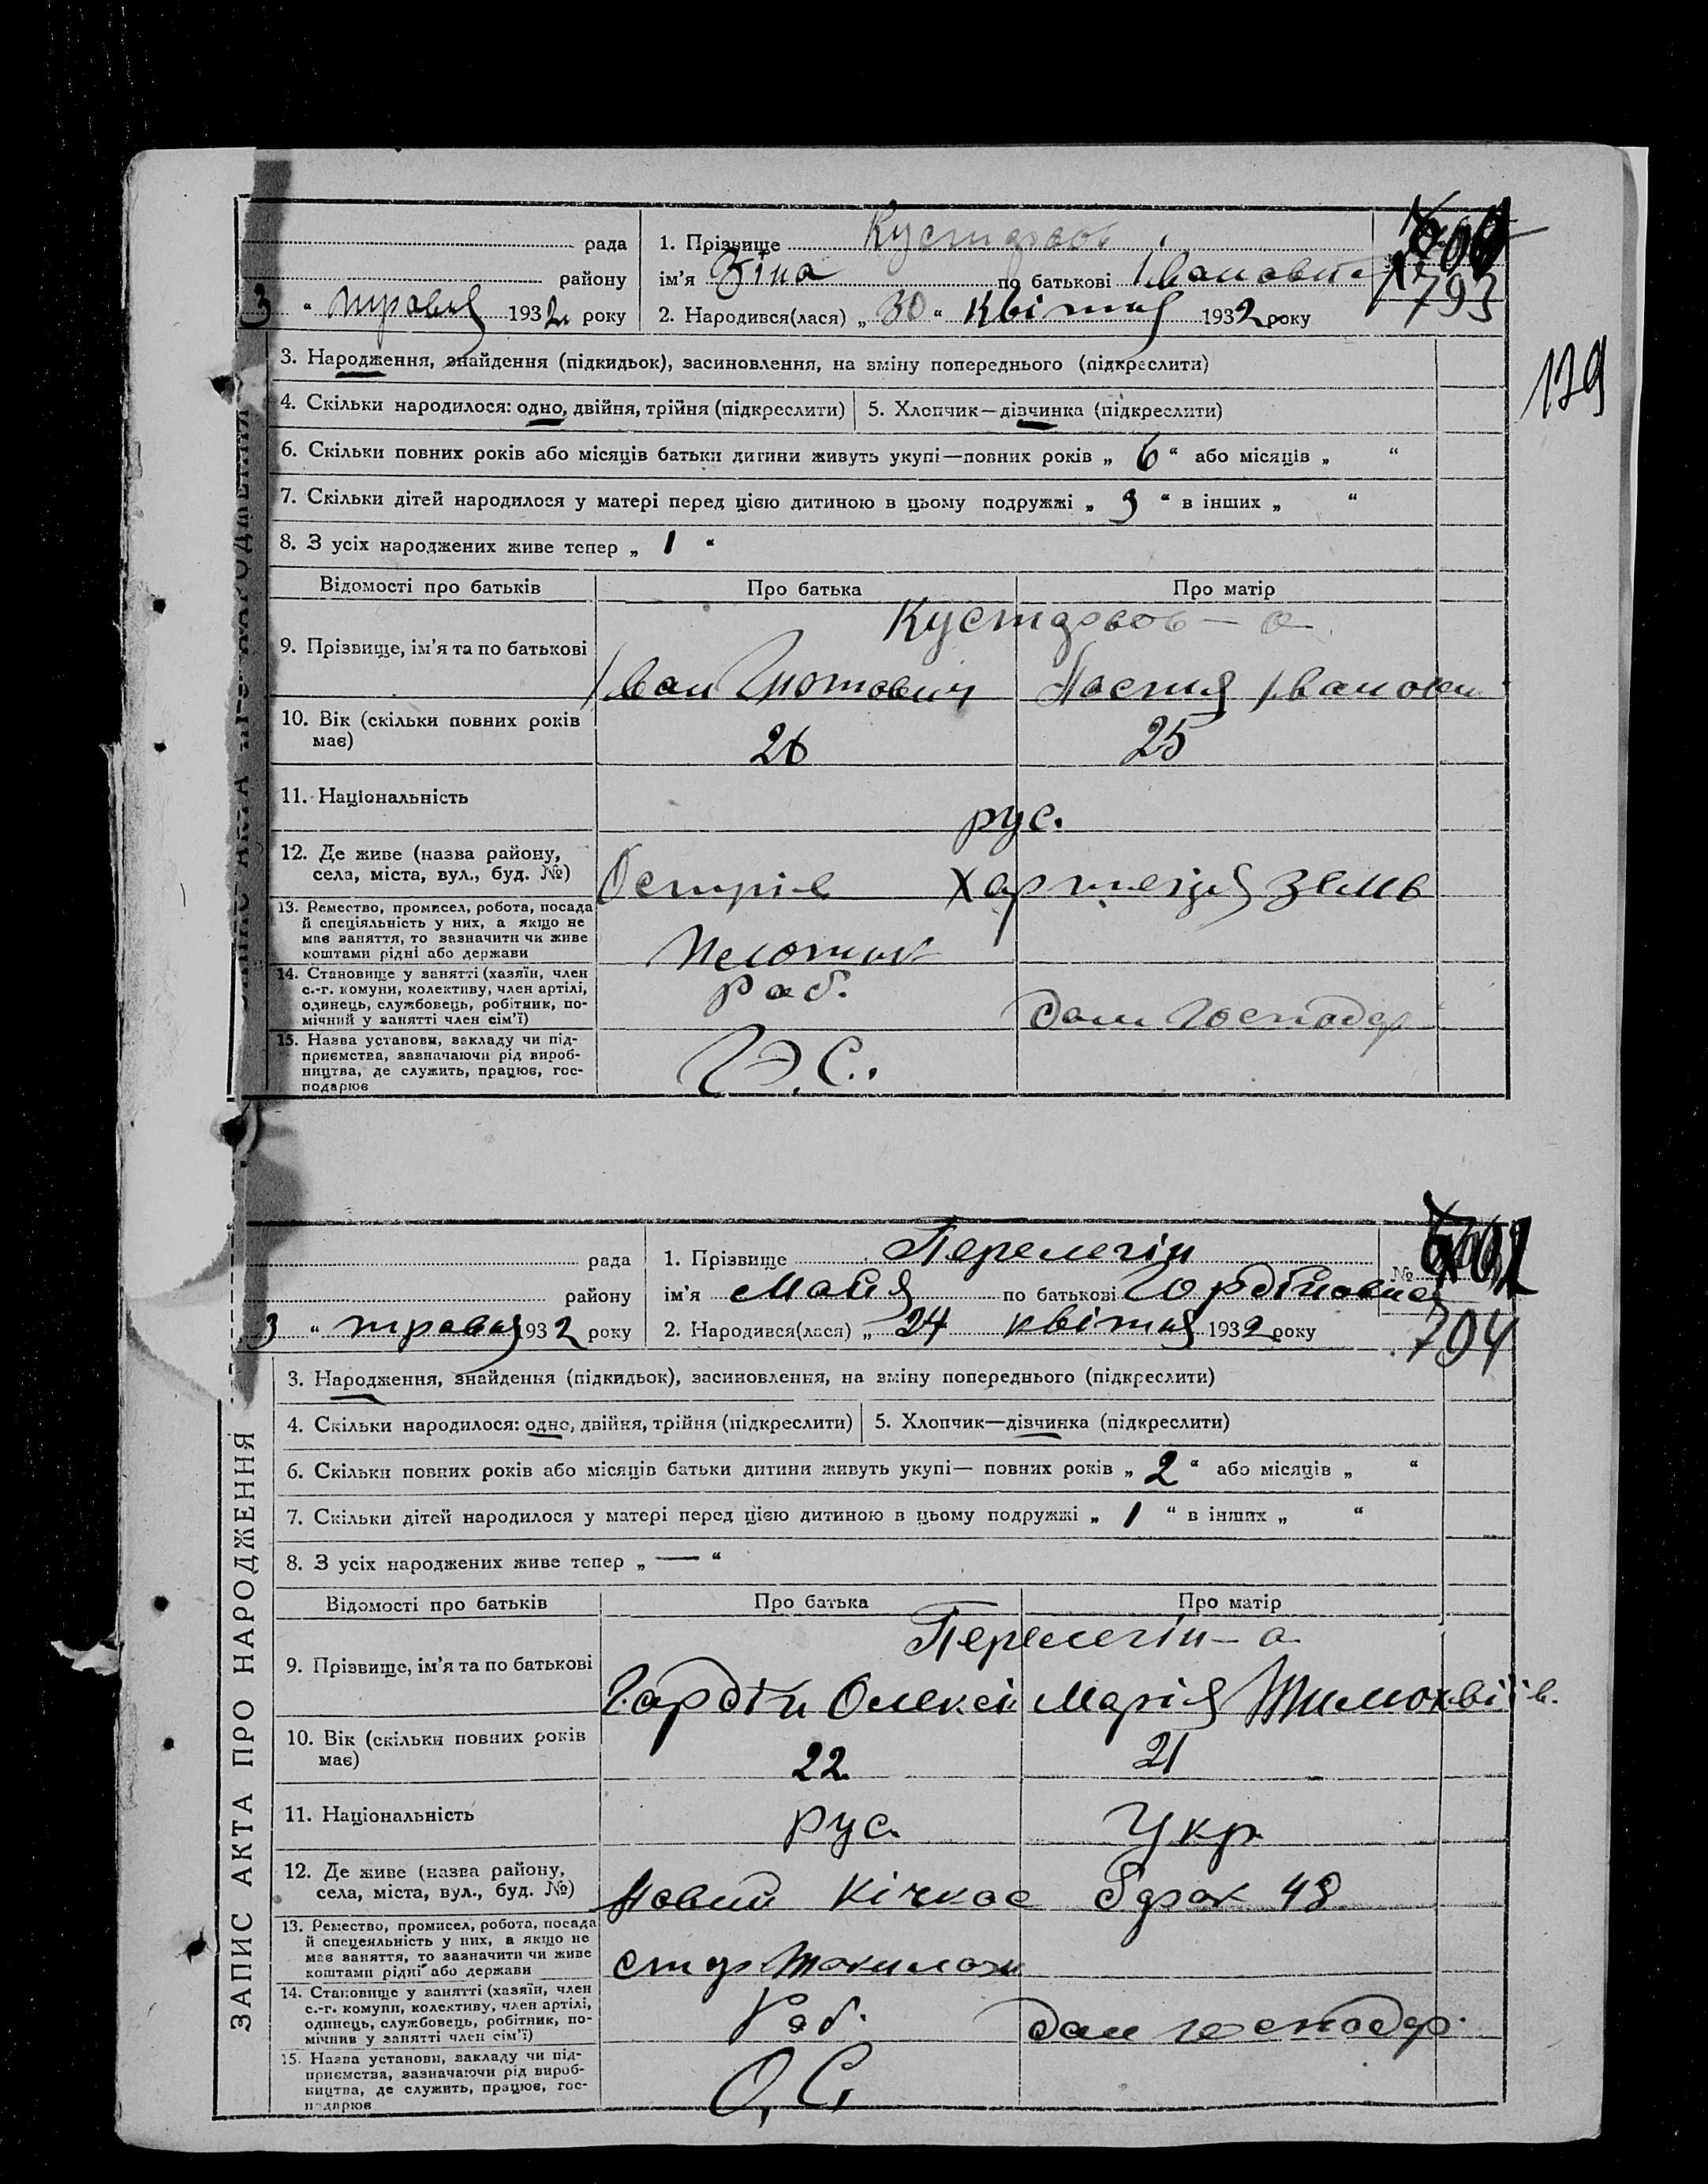 рада
району
3 " травня 1932 року
1. Прізвище
ім'я Зіна по батькові Івановна
2. Народився(лася) „ 30 " квітня 1932 року
793
139
3. Народження, знайдення (підкидьок), засиновлення, на зміну попереднього (підкреслити)
4. Скільки народилося: одно, двійня, трійня (підкреслити)
5. Хлопчик—дівчинка (підкреслити)
6. Скільки повних років або місяців батьки дитини живуть укупі—повних років „ 6 " або місяців „ "
7. Скільки дітей народилося у матері перед цією дитиною в цьому подружжі „ 3 " в інших „ "
8. З усіх народжених живе тепер „ 1 "
Відомості про батьків
Про батька
Про матір
9. Прізвище, ім'я та по батькові
Іван
10. Вік (скільки повних років
має)
26
25
11. Національність
рус.
12. Де живе (назва району,
села, міста, вул., буд. №)
Острів
13. Ремество, промисел, робота, посада
й спеціяльність у них, а якщо не
має заняття, то зазначити чи живе
коштами рідні або держави
14. Становище у занятті (хазяїн, член
с.-г. комуни, колективу, член артілі,
одинець, службовець, робітник, по-
мічний у занятті член сім'ї)
раб.
дом господар
15. Назва установи, закладу чи під-
приємства, зазначаючи рід вироб-
ництва, де служить, працює, гос-
подарює
ЗАПИС АКТА ПРО НАРОДЖЕННЯ
рада
району
3 " травня 1932 року
1. Прізвище Перелегін
ім'я Майя по батькові Гордіновна
2. Народився(лася) „ 24 квітня 1932 року
№
794
3. Народження, знайдення (підкидьок), засиновлення, на зміну попереднього (підкреслити)
4. Скільки народилося: одно, двійня, трійня (підкреслити)
5. Хлопчик—дівчинка (підкреслити)
6. Скільки повних років або місяців батьки дитини живуть укупі— повних років „ 2 " або місяців „ "
7. Скільки дітей народилося у матері перед цією дитиною в цьому подружжі „ 1 " в інших „ "
8. З усіх народжених живе тепер „ — "
Відомості про батьків
Про батька
Про матір
9. Прізвище, ім'я та по батькові
Перелегін - а
Гордін Олексій
Марія Тимохвіїв.
10. Вік (скільки повних років
має)
22
21
11. Національність
рус.
Укр
12. Де живе (назва району,
села, міста, вул., буд. №)
Новий Кічкас барак 48
13. Ремество, промисел, робота, посада
й спецеяльність у них, а якщо не
має заняття, то зазначити чи живе
коштами рідні або держави
14. Становище у занятті (хазяїн, член
с.-г. комуни, колективу, член артілі,
одинець, службовець, робітник, по-
мічнив у занятті член сім'ї)
Раб.
дом господар.
15. Назва установи, закладу чи під-
приємства, зазначаючи рід вироб-
ництва, де служить, працює, гос-
подарює
О. С.